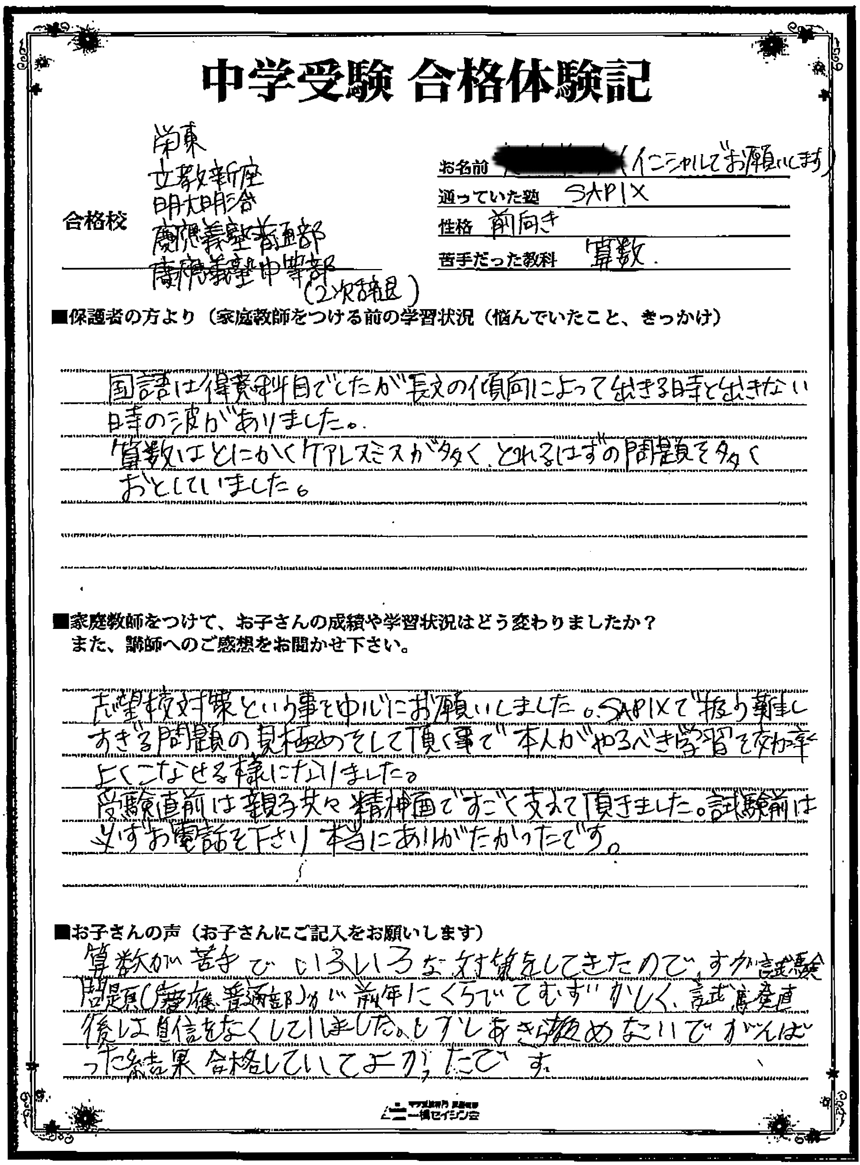 中学受験 合格体験記
合格校
栄東
立教新座
明大明治
慶應義塾普通部
慶應義塾中等部
(2次辞退)
お名前 (イニシャルでお願いします)
通っていた塾 SAPIX
性格 前向き
苦手だった教科 算数.
■保護者の方より（家庭教師をつける前の学習状況（悩んでいたこと、きっかけ）
国語は得意科目でしたが長文の傾向によって出きる時と出きない
時の波がありました。
算数はとにかくケアレスミスが多く、とれるはずの問題を多く
おとしていました。
■家庭教師をつけて、お子さんの成績や学習状況はどう変わりましたか？
また、講師へのご感想をお聞かせ下さい。
志望校対策という事を中心にお願いしました。SAPIXで扱う難し
すぎる問題の見極めをして頂く事で本人がやるべき学習を効率
よくこなせる様になりました。
受験直前は親子共々精神面ですごく支えて頂きました。試験前は
必ずお電話を下さり本当にありがたかったです。
■お子さんの声（お子さんにご記入をお願いします）
算数が苦手でいろいろな対策をしてきたのですが試験
問題(慶應普通部)が前年にくらべてむずかしく、試験直
後は自信をなくしていました。しかしあきら諦めないでがんば
った結果合格していてよかったです。
一橋セイシン会